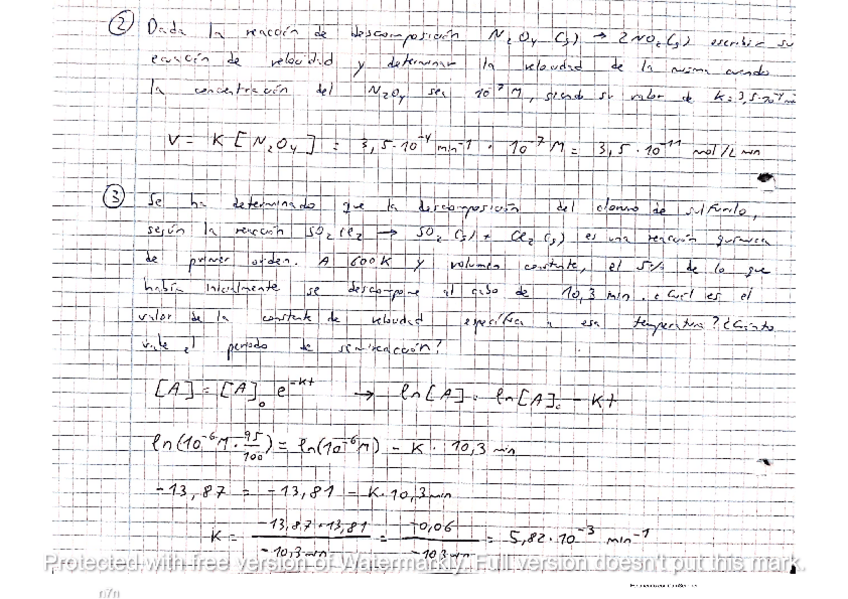 ② Dada la reacción de descomposición N₂O₄ (g) → 2NO₂ (g) escribir su
ecuación de velocidad y determinar la velocidad de la misma cuando
la concentración del N₂O₄ sea 10⁻⁷ M, siendo su valor de K = 3,5·10⁻⁴ min
V = K [N₂O₄] = 3,5·10⁻⁴ min⁻¹ · 10⁻⁷ M = 3,5·10⁻¹¹ mol/L min
③ Se ha determinado que la descomposición del cloruro de sulfurilo,
según la reacción SO₂Cl₂ → SO₂ (g) + Cl₂ (g) es una reacción química
de primer orden. A 600K y volumen constante, el 5% de lo que
había inicialmente se descompone al cabo de 10,3 min. ¿Cuál es el
valor de la constante de velocidad específica a esa temperatura? ¿Cuánto
vale el periodo de semireacción?
[A] = [A]₀ e⁻ᴷᵗ → ln[A] = ln[A]₀ - Kt
ln(10⁻⁶M · 95/100) = ln(10⁻⁶M) - K · 10,3 min
-13,87 = -13,81 - K·10,3 min
K = (-13,87+13,81)/(-10,3 min) = (-0,06)/(-10,3 min) = 5,82·10⁻³ min⁻¹
Protected with free version of Watermarkly. Full version doesn't put this mark.